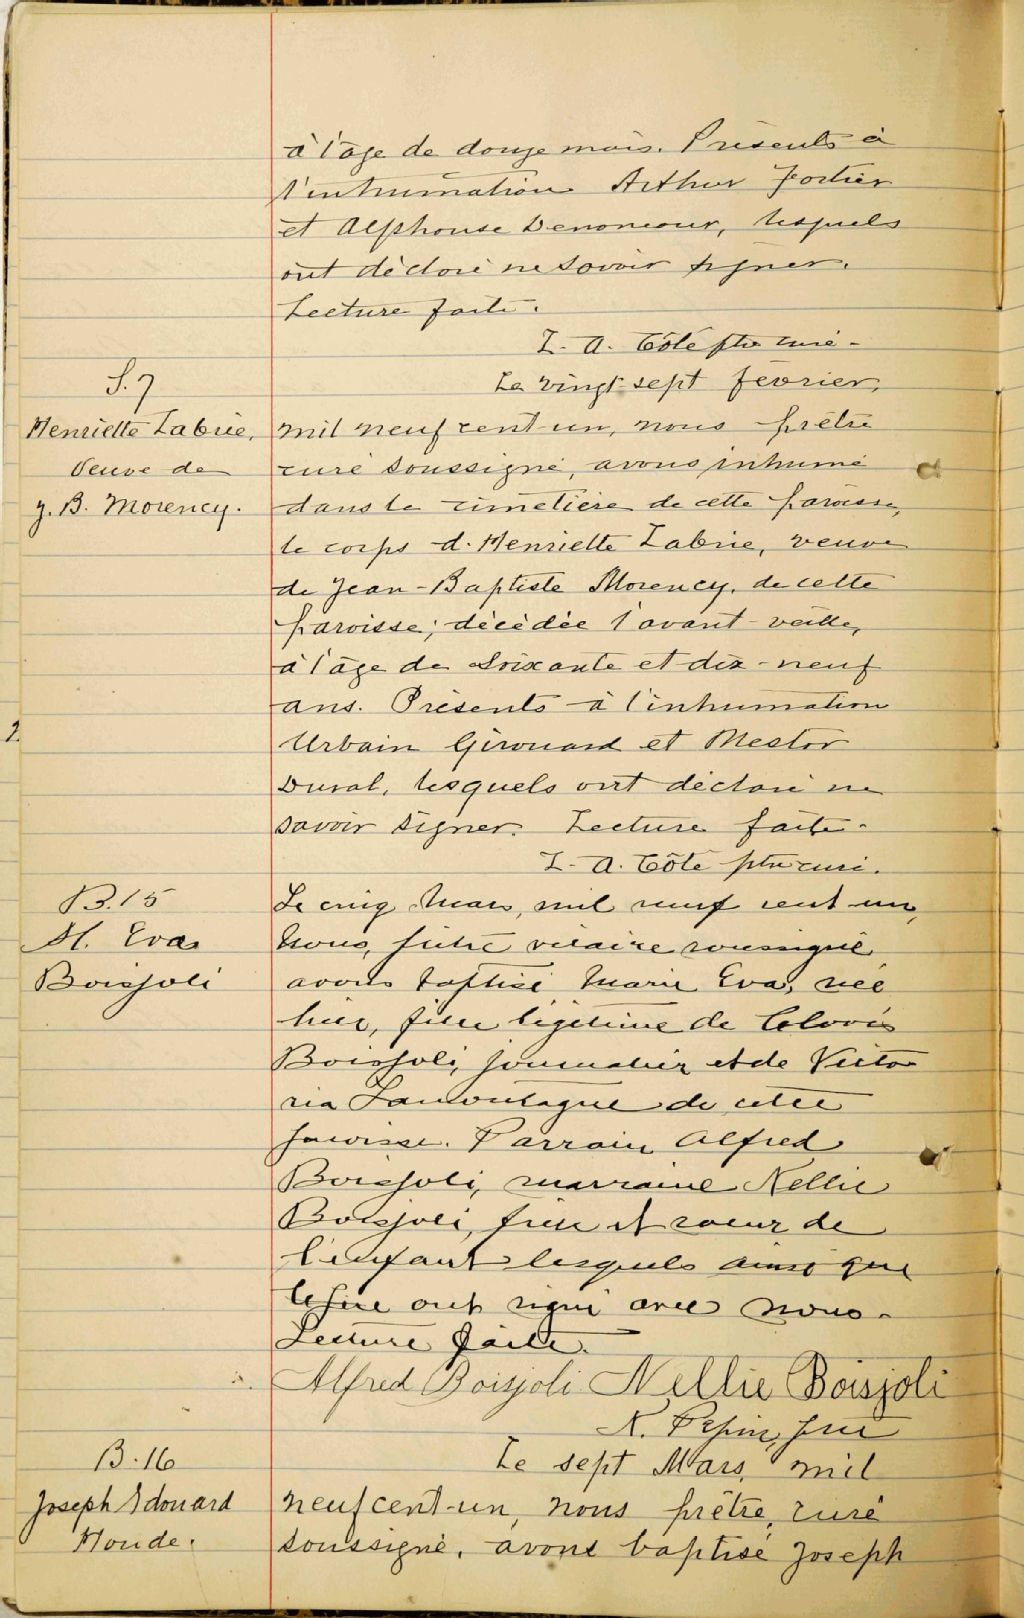 à l'âge de douze mois. Présents à
l'inhumation Arthur Fortier
et Alphonse Denoncour, lesquels
ont déclaré ne savoir signer.
Lecture faite.
L. A. Côté ptre curé -
Le vingt-sept février,
S. 7
Henriette Labrie,
Veuve de
J. B. Morency.
mil neuf cent-un, nous prêtre
curé soussigné, avons inhumé
dans le cimetière de cette paroisse,
le corps d. Henriette Labrie, veuve
de Jean-Baptiste Morency, de cette
paroisse; décédée l'avant-veille,
à l'âge de soixante et dix-neuf
ans. Présents à l'inhumation
Urbain Girouard et Nestor
Duval, lesquels ont déclaré ne
savoir signer. Lecture faite.
L. A. Côté ptre curé.
B. 15
M. Eva
Boisjoli
Le cinq Mars, mil neuf cent un,
Nous, prêtre vicaire soussigné
avons baptisé Marie Eva, née
hier, fille légitime de Clovis
Boisjoli, journalier et de Victo
ria Lamontagne de cette
paroisse. Parrain Alfred
Boisjoli, marraine Nellie
Boisjoli, frère et soeur de
l'enfant lesquels ainsi que
le père ont signé avec nous.
Lecture faite.
Alfred Boisjoli Nellie Boisjoli
N. Pepin, ptre
B. 16
Joseph Edouard
Houde.
Le sept Mars, mil
neuf cent-un, nous prêtre, curé
soussigné, avons baptisé Joseph